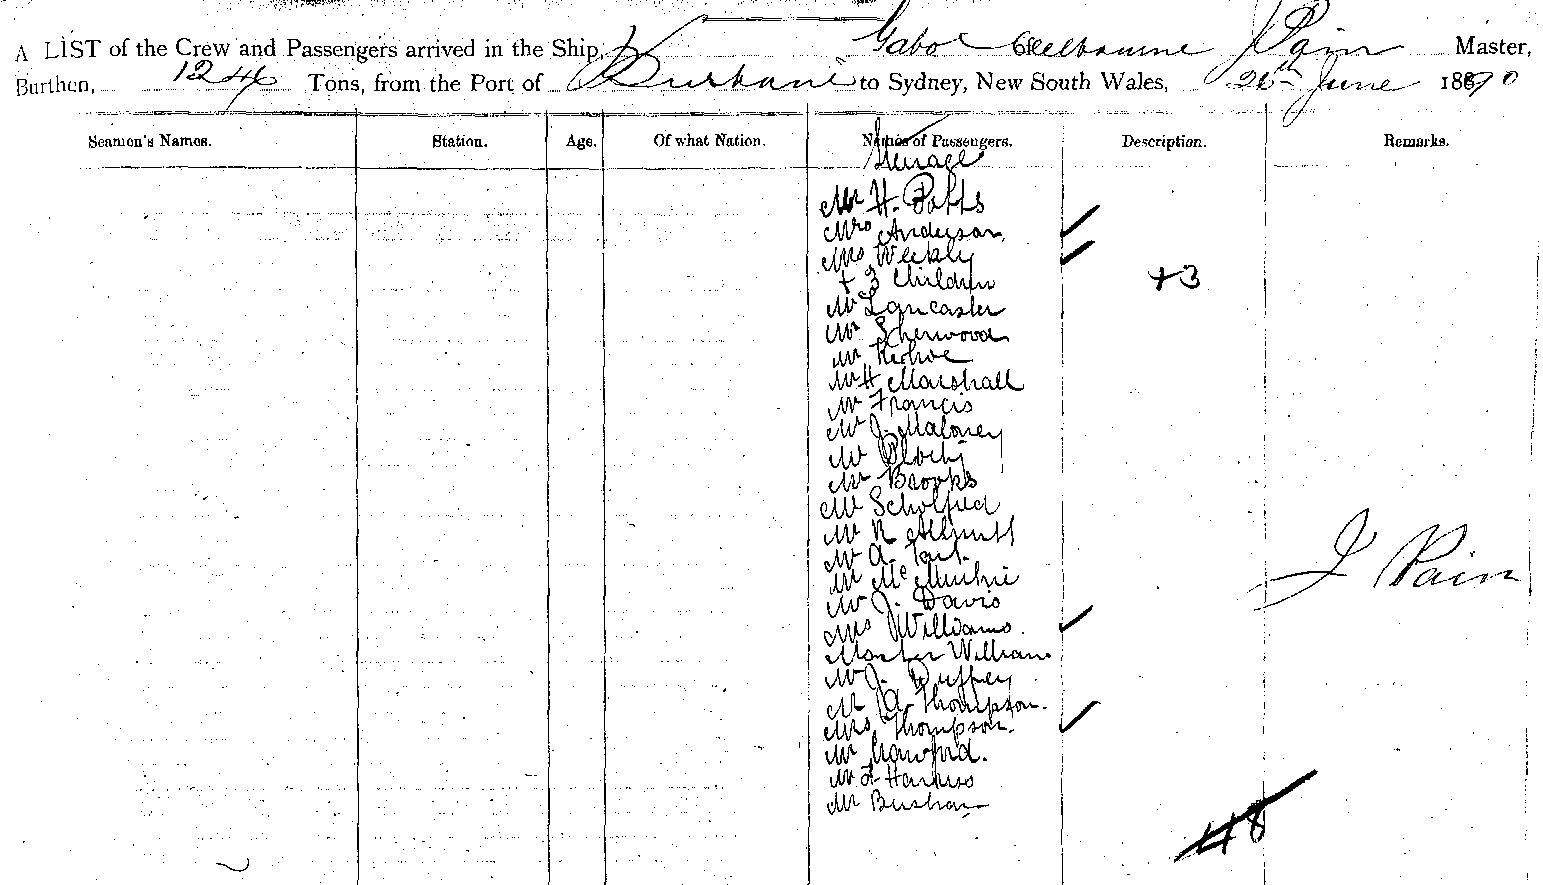 A LIST of the Crew and Passengers arrived in the Ship, Gabo of Melbourne J Pain Master,
Burthen, 1244 Tons, from the Port of Brisbane to Sydney, New South Wales, 26th June 1890
Seamen's Names. Station. Age. Of what Nation. Names of Passengers. Description. Remarks.
Steerage
Mr H. Potts
Mrs Anderson
Mrs Weekly
+ 3 Children +3
Mr Lancaster
Mr Sherwood
Mr Kehoe
Mr H Marshall
Mr Francis
Mr J. Maloney
Mr
Mr Brooks
Mr Scholfied
Mr R
Mr A.
Mr McMurtrie
J Pain
Mr J. Davis
Mrs Williams.
Master William
Mr J. Duffey
Mr A Thompson.
Mrs Thompson.
Mr Crawford.
Mr Harkus
Mr
48